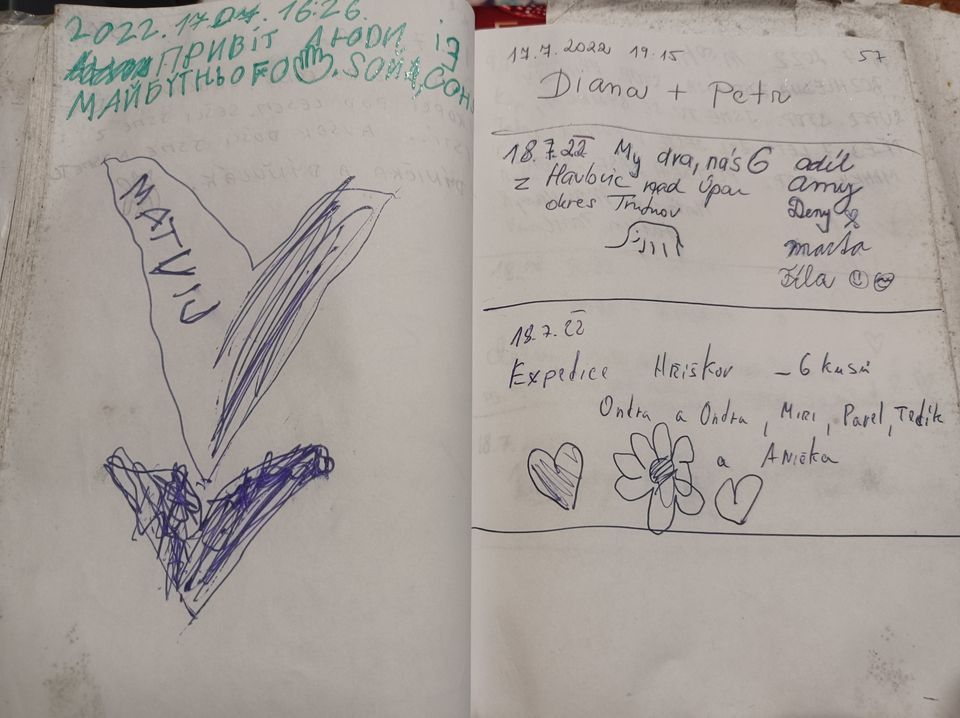 2022.17.07. 16:26.
ПРИВІТ ЛЮДИ ІЗ
МАЙБУТНЬОГО
MATVIJ
17.7.2022 19.15 57
Diana + Petr
18.7.22 My dra, nás 6
z Havlovic nad Úpou
okres Trutnov
adél
amy
Deny
marta
Fíla
18.7.22
Expedice Hříškov - 6 kusů
Ondra a Ondra, Miri, Pavel, Tedík
a Anička